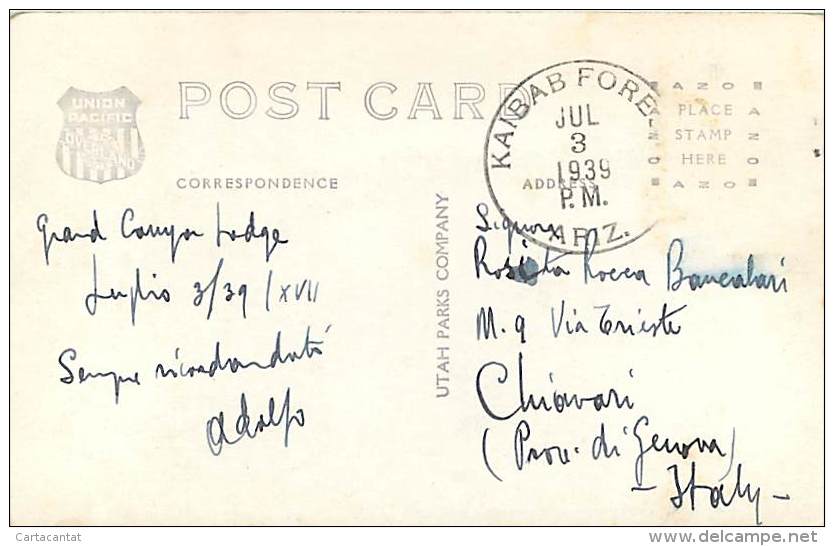 UNION
PACIFIC
OVERLAND
POST CARD
CORRESPONDENCE
ADDRESS
KAIBAB FORE
JUL
3
1939
P.M.
ARIZ.
AZO
PLACE
STAMP
HERE
AZO
UTAH PARKS COMPANY
Grand Canyon Lodge
Luglio 3/39/XVII
Sempre ricordandoti
Adolfo
Signora
Rosetta Rocca Bancalari
M. 9 Via Trieste
Chiavari
(Prov. di Genova)
- Italy -
Cartacantat
delcampe.net